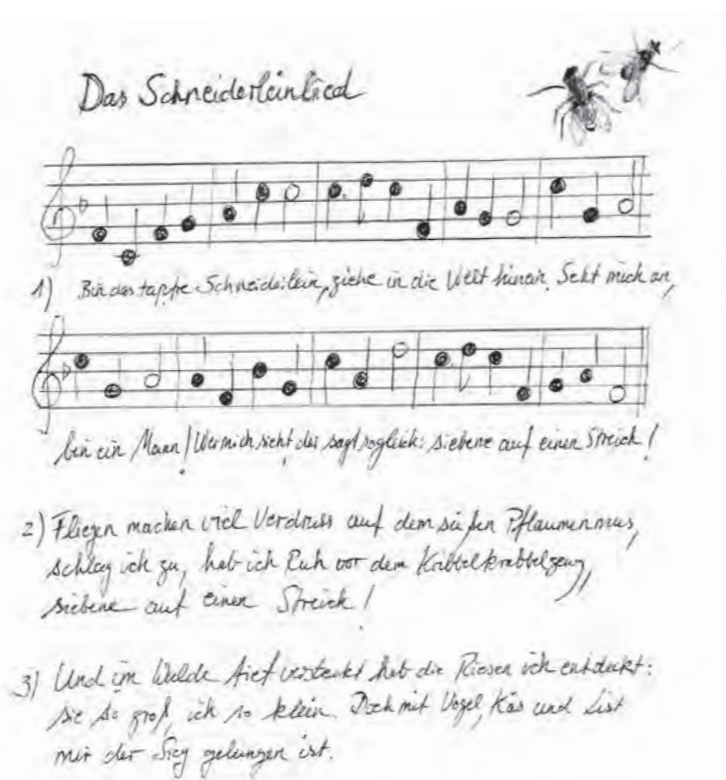 Das Schneiderleinlied
1) Bin das tapfre Schneiderlein, ziehe in die Welt hinein. Seht mich an,
bin ein Mann! Wer mich sieht der sagt sogleich: siebene auf einen Streich!
2) Fliegen machen viel Verdruss auf dem süßen Pflaumenmus,
schlag ich zu, hab ich Ruh vor dem Kribbelkrabbelzeug,
siebene auf einen Streich!
3) Und im Walde tief versteckt hab die Riesen ich entdeckt:
sie so groß, ich so klein. Doch mit Vogel, Käs und List
mir der Sieg gelungen ist.